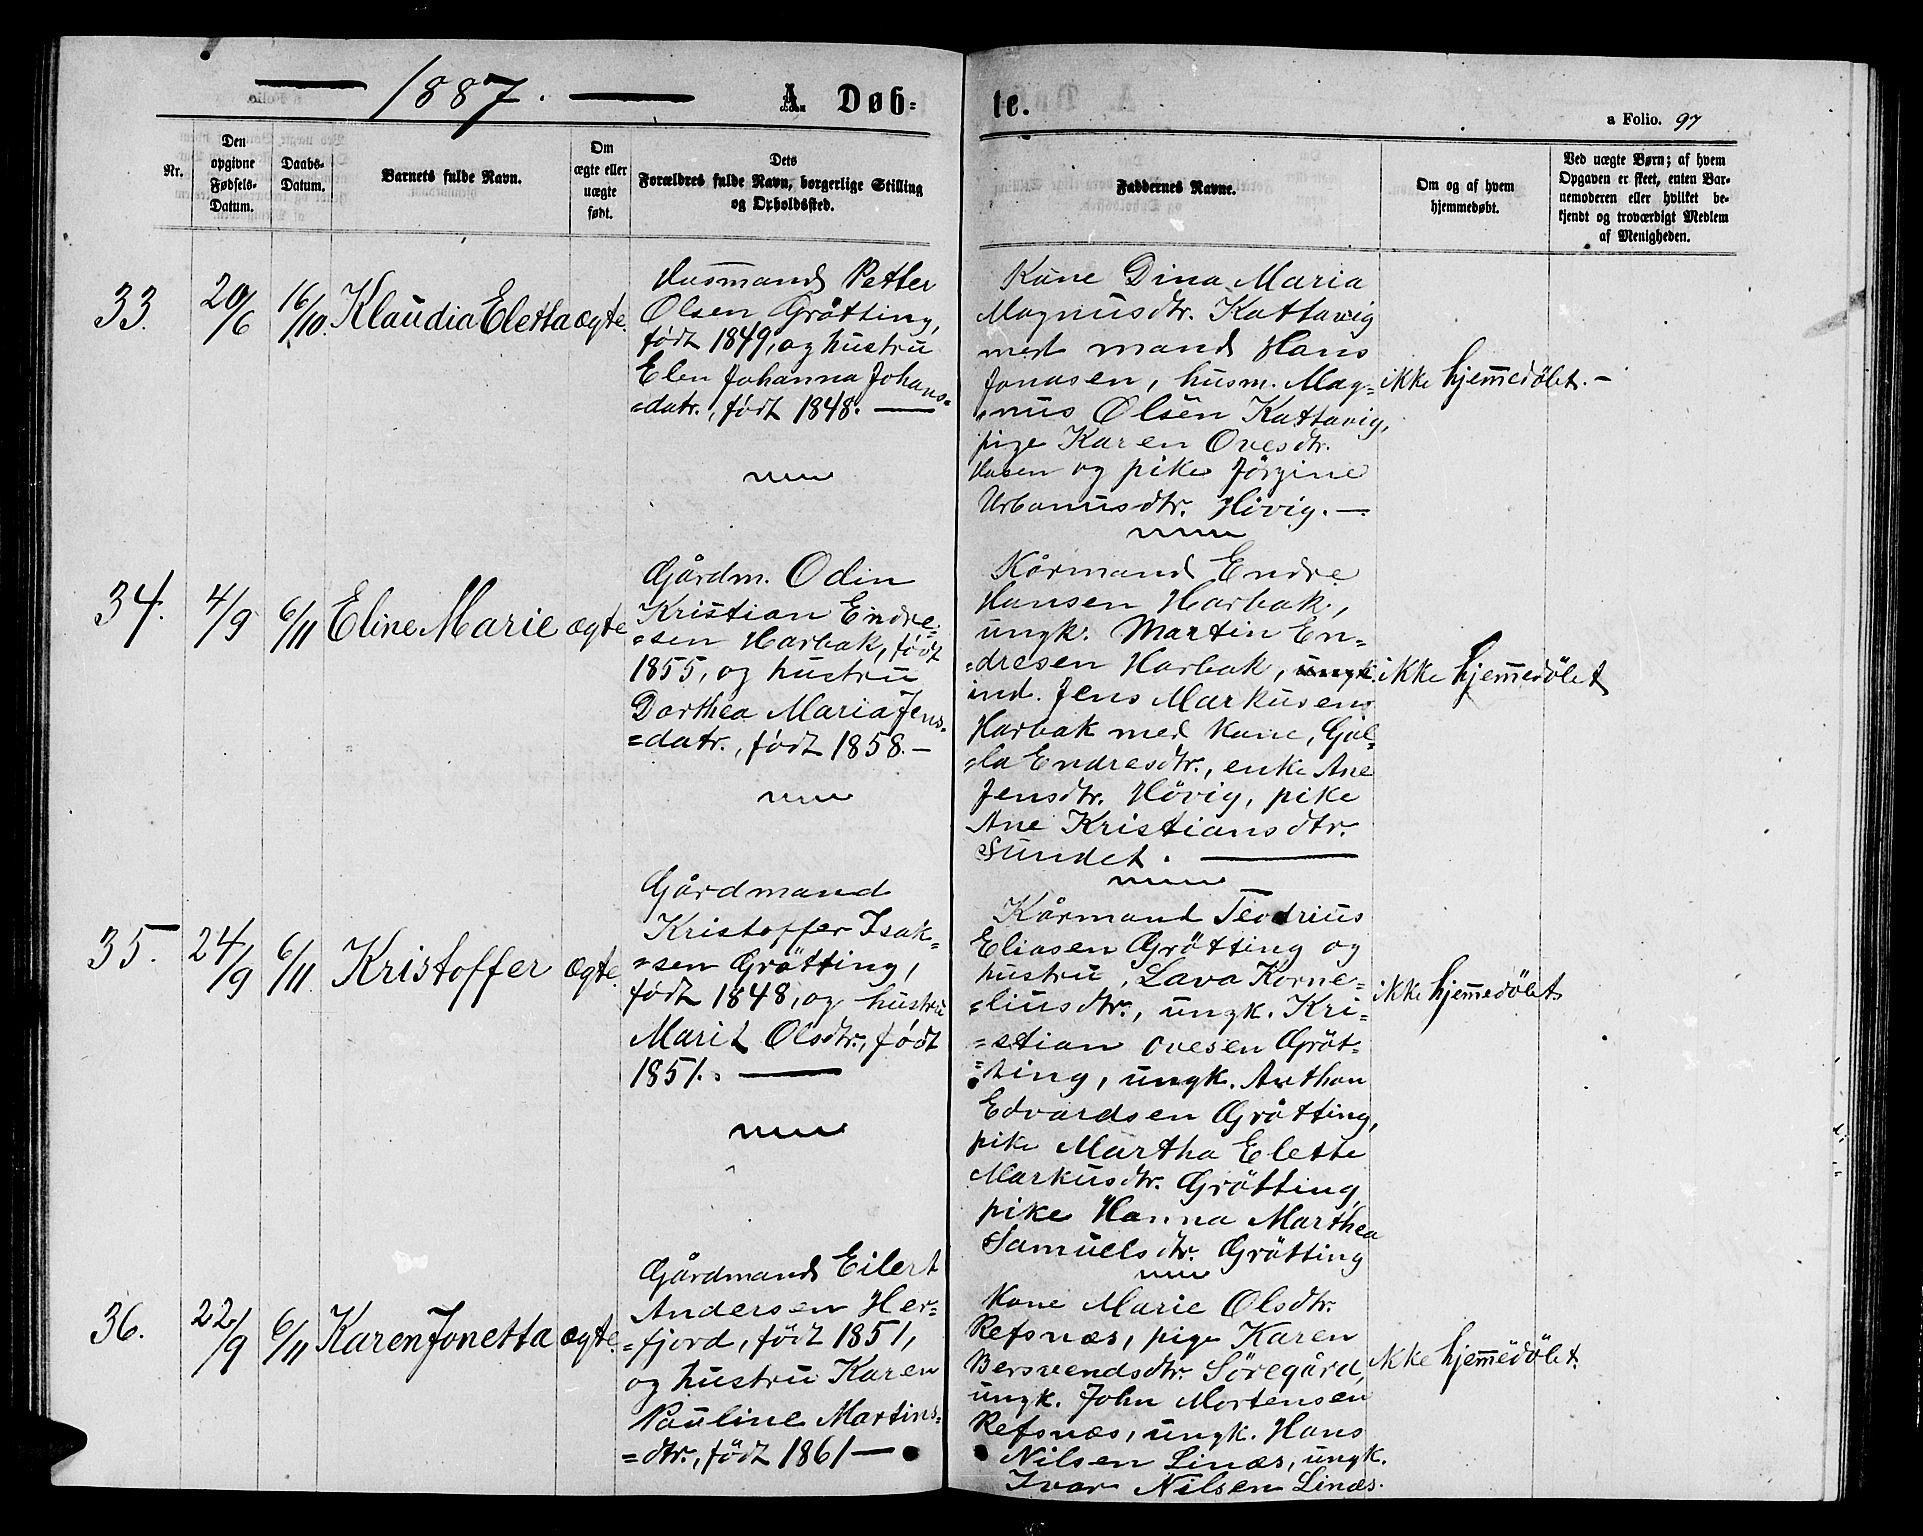 1887.
A. Døb-
te.
a Folio. 97
Nr.
Den
opgivne
Fødsels-
Datum.
Daabs-
Datum.
Barnets fulde Navn.
Om
ægte eller
uægte
født.
Dets
Forældres fulde Navn, borgerlige Stilling
og Opholdssted.
Faddernes Navne.
Om og af hvem
hjemmedøbt.
Ved uægte Børn; af hvem
Opgaven er skeet, enten Bar-
nemoderen eller hvilket be-
kjendt og troværdigt Medlem
af Menigheden.
33.
20/6
16/10.
Klaudia Eletta
ægte.
Husmand Petter
Olsen Grøtting,
født 1849, og hustru
Elen Johanna Johans-
=datr., født 1848. —
Kone Dina Maria
Magnusdtr. Kattavig
med mand Hans
Jonasen, husm. Mag-
=nus Olsen Kattavig,
pige Karen Ovesdtr.
Hasen og pike Jörgine
Urbanusdtr. Hövig. —
ikke hjemmedöbt. –
34.
4/9
6/11
Eline Marie
ægte
Gårdm. Odin
Kristian Endre-
=sen Harbak, født
1855, og hustru
Dorthea Maria Jens-
=datr., født 1858. –
Kårmand Endre
Hansen Harbak,
ungk. Martin En-
=dresen Harbak, ungk.
ind. Jens Markusens
Harbak med kone, Gol-
=la Endresdtr., enke Ane
Jensdtr. Hövig, pike
Ane Kristiansdtr.
Sundet. —
ikke hjemmedöbt
35.
24/9
6/11.
Kristoffer
ægte.
Gårdmand
Kristoffer Isak-
=sen Grötting,
født 1848, og hustru
Marit Olsdtr., født
1851. —
Kårmand Teodrius
Eliasen Grötting og
hustru, Lava Korne-
=liusdtr., ungk. Kri-
=stian Ovesen Gröt-
=ting, ungk. Anthon
Edvardsen Grötting,
pike Martha Elette
Markusdtr. Grötting,
pike Hanna Marthea
Samuelsdtr. Grötting
ikke hjemmedöbt
36.
22/9
6/11
Karen Jonetta
ægte.
Gårdmand Eilert
Andersen Her-
=fjord, født 1851,
og hustru Karen
Pauline Martins-
=dtr., født 1861 —
Kone Marie Olsdtr.
Refsnæs, pige Karen
Bersvendsdtr. Söregård,
ungk. John Mortensen
Refsnæs, ungk. Hans
Nilsen Linæs, ungk.
Ivar Nilsen Linæs.
ikke hjemmedöbt.